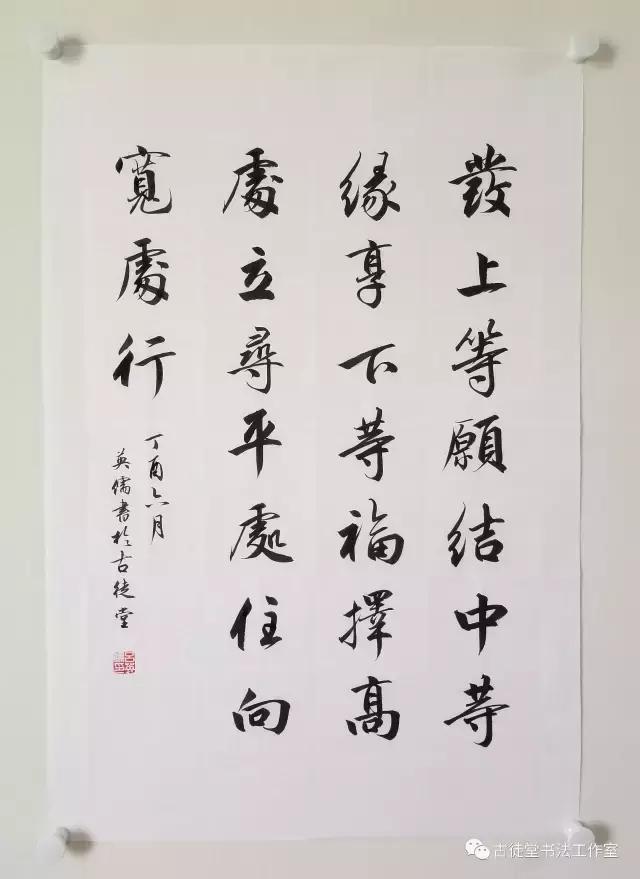 發上等願結中等
緣享下等福擇高
處立尋平處住向
寬處行
丁酉六月
英儒書於古徒堂
古徒堂书法工作室